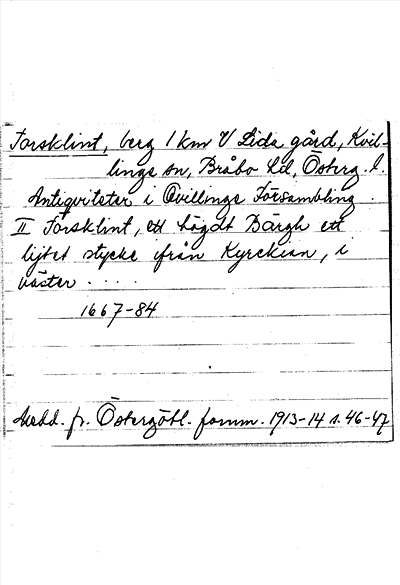 Torsklint, berg 1 km V Lida gård, Kvil-
linge sn, Bråbo hd, Österg. l.
Antiqviteter i Qvillinge Försambling.
II Torsklint, ett högdt Bärgh ett
lijtet stycke ifrån Kyrckian, i
väster . . . .
1667-84
Medd. fr. Östergötl. fornm. 1913-14 s. 46-47